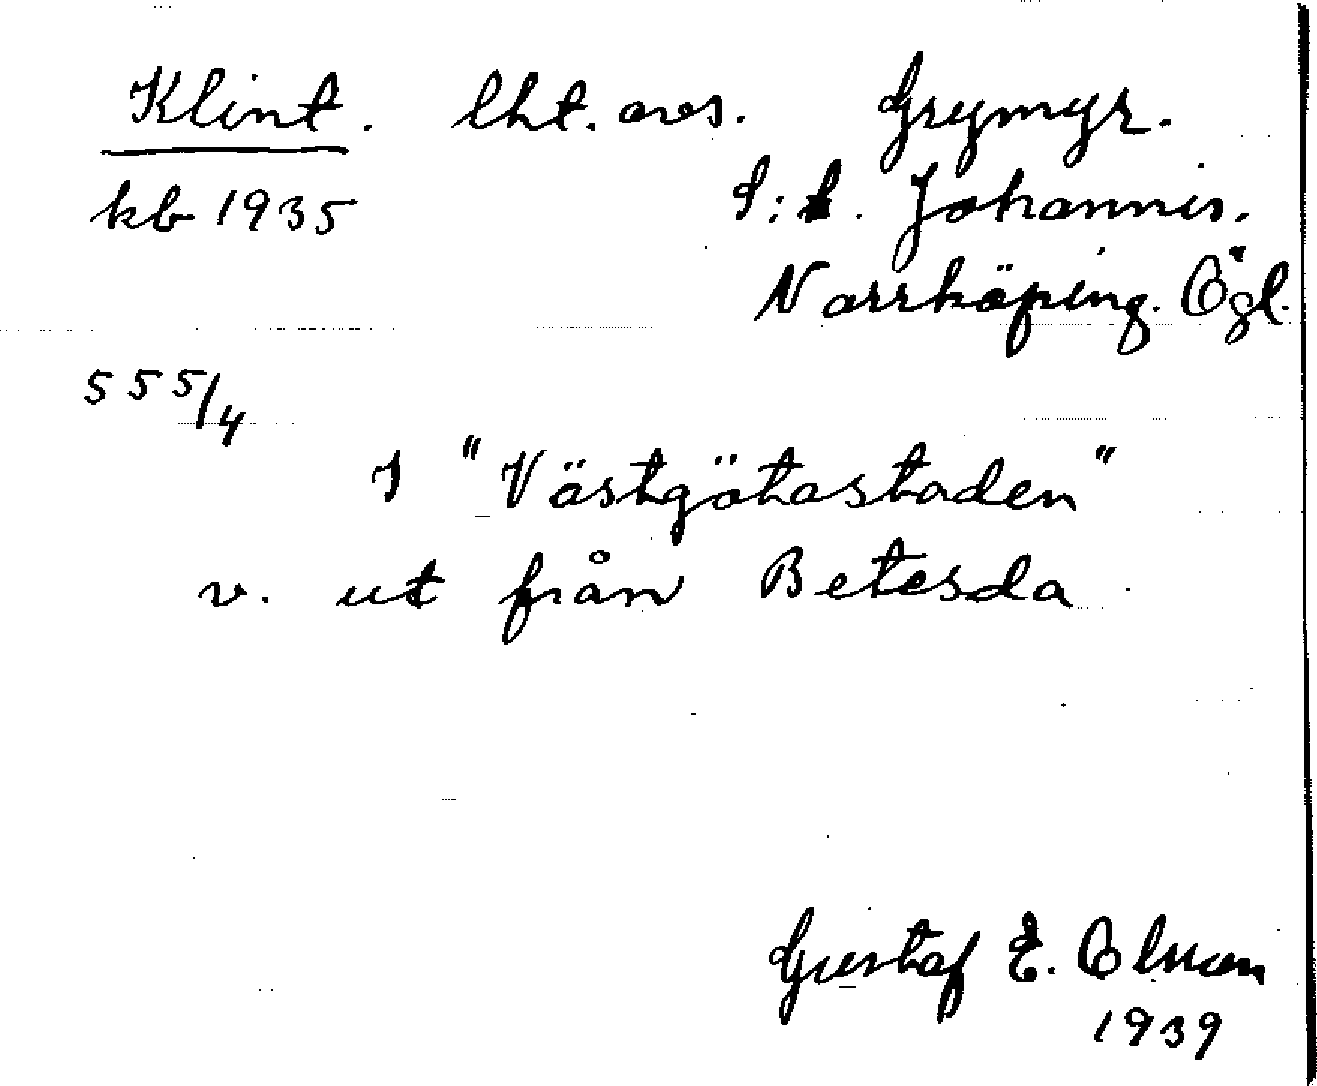 Klint. lht. avs. Grymyr.
kb 1935 S:t. Johannis.
Norrköping. Ögl.
555/4
I "Västgötastaden"
v. ut från Betesda.
Gustaf E.
1939